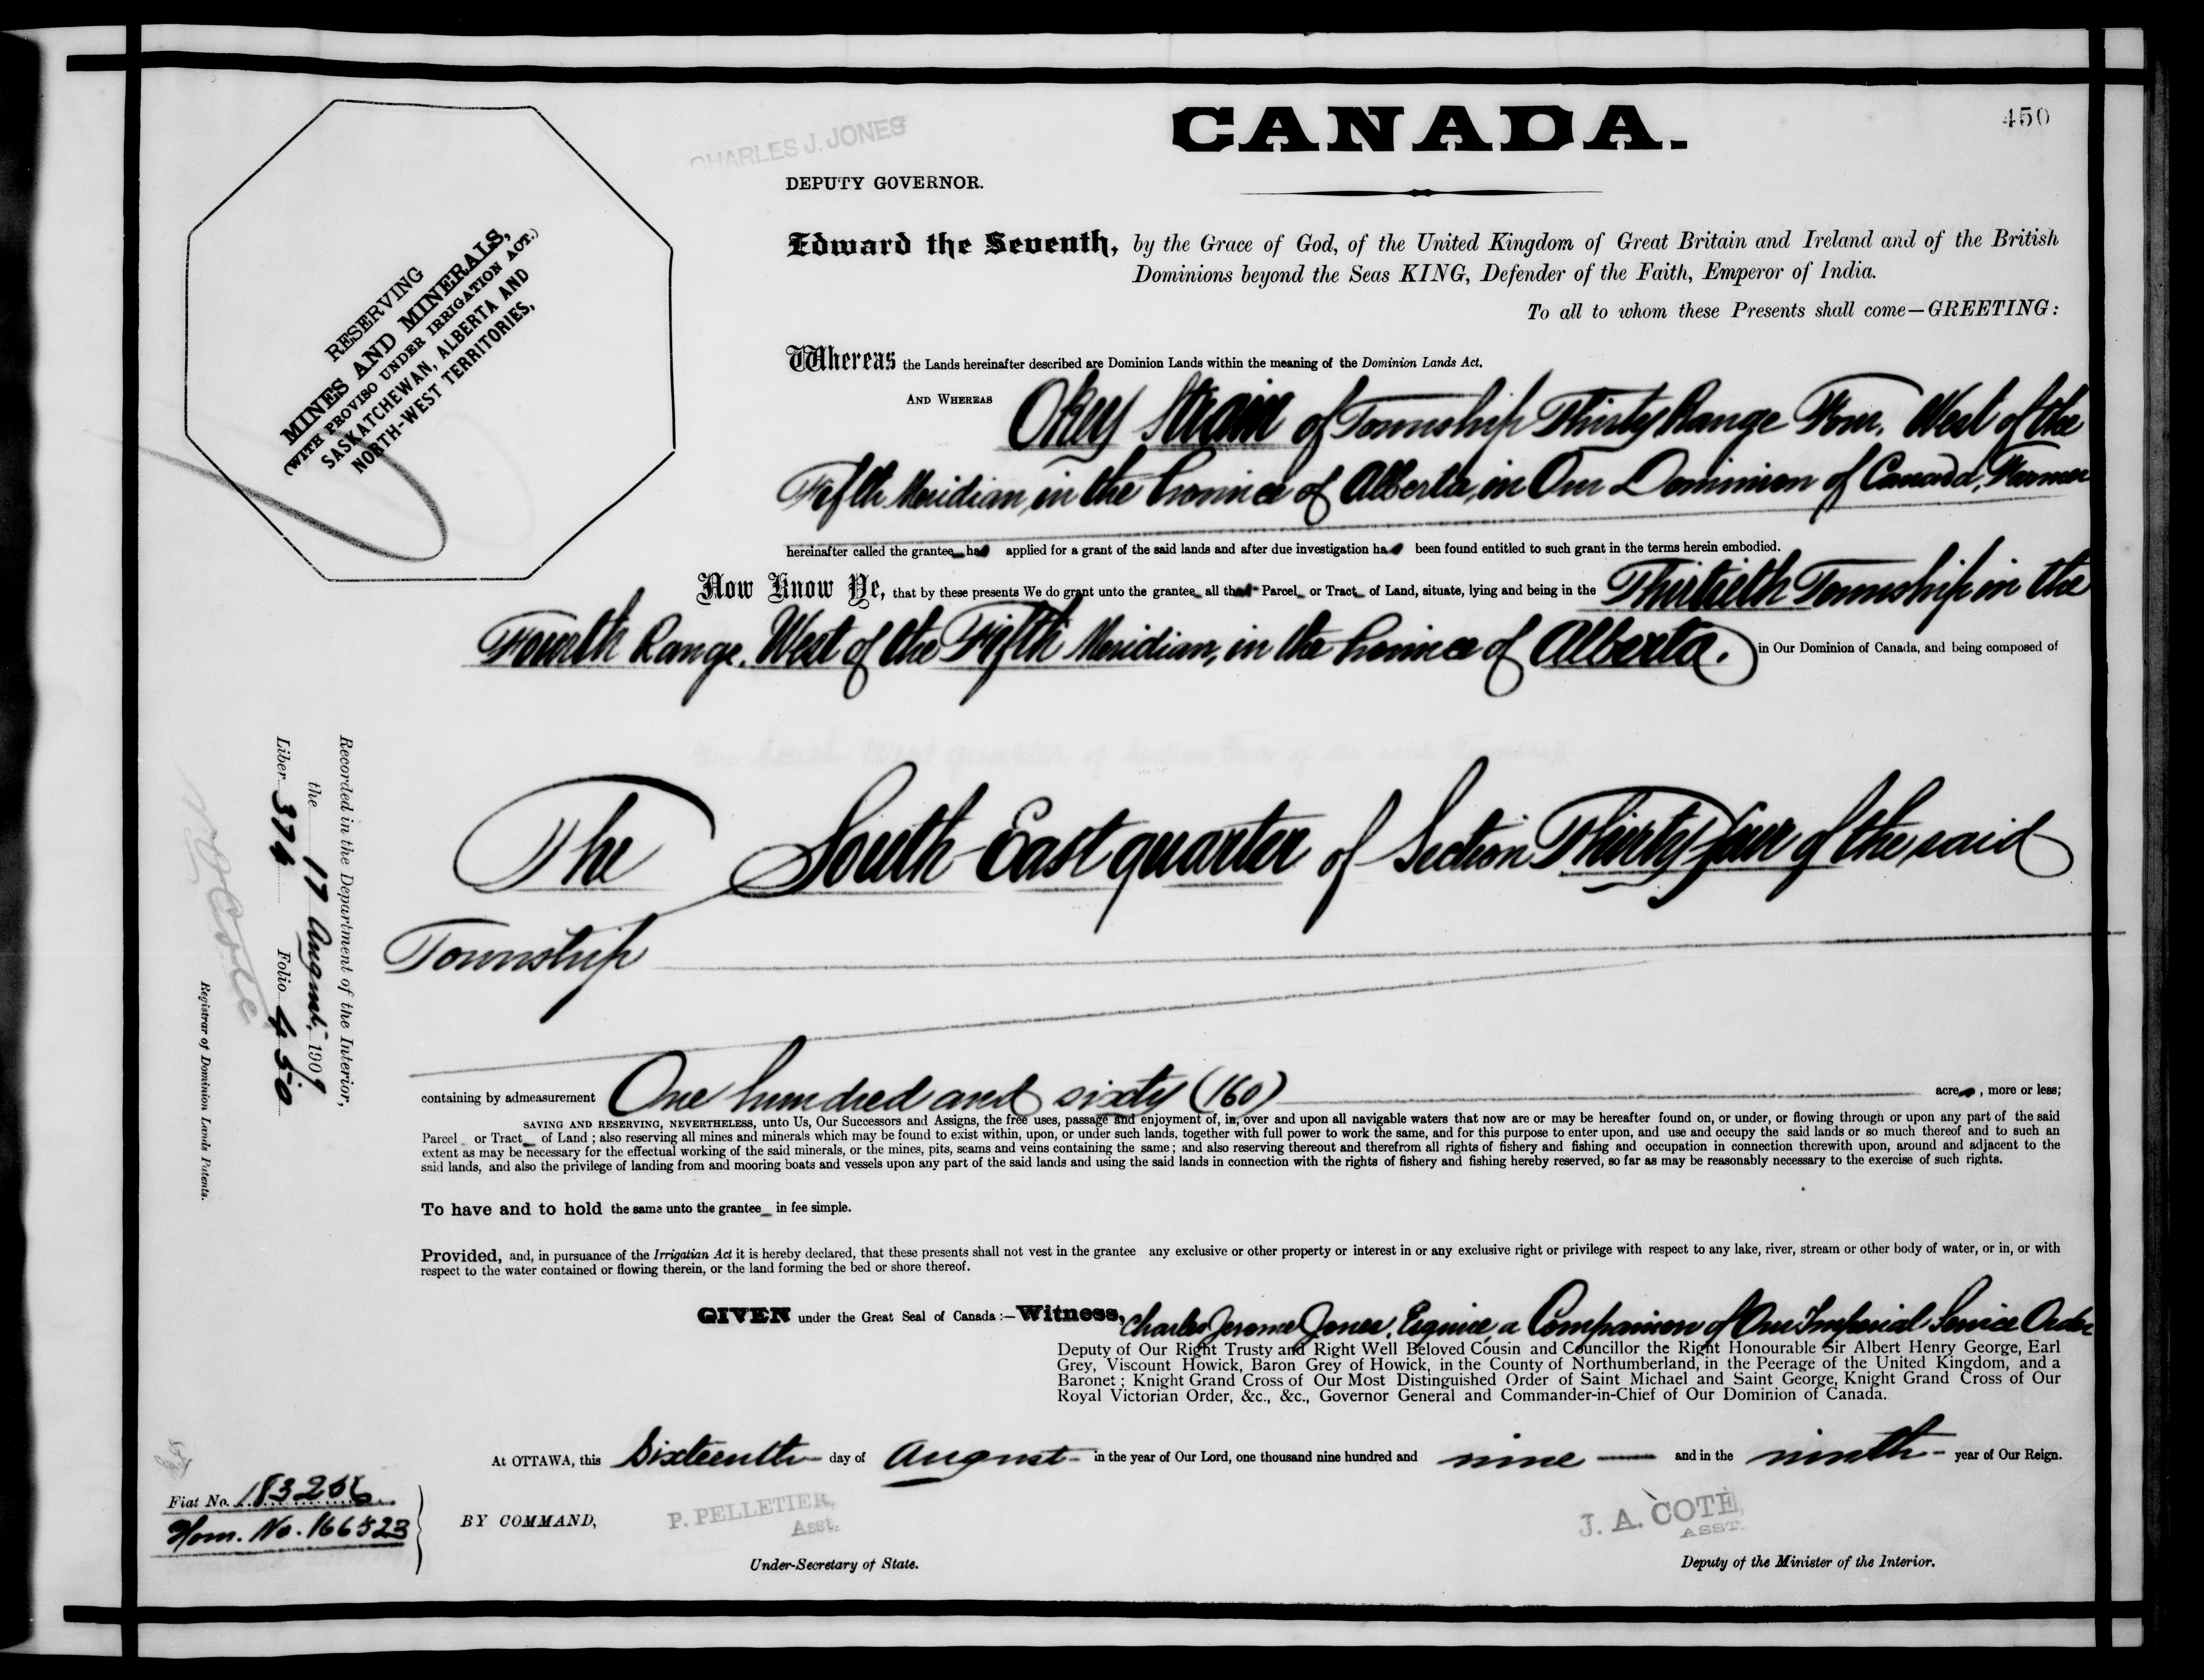 450
CHARLES J. JONES
CANADA.
DEPUTY GOVERNOR.
RESERVING
MINES AND MINERALS,
(WITH PROVISO UNDER IRRIGATION ACT.)
SASKATCHEWAN, ALBERTA AND
NORTH-WEST TERRITORIES,
Edward the Seventh, by the Grace of God, of the United Kingdom of Great Britain and Ireland and of the British
Dominions beyond the Seas KING, Defender of the Faith, Emperor of India.
To all to whom these Presents shall come—GREETING:
Whereas the Lands hereinafter described are Dominion Lands within the meaning of the Dominion Lands Act.
AND WHEREAS Okey Strain of Township Thirty Range Four, West of the
Fifth Meridian, in the Province of Alberta, in Our Dominion of Canada, Farmer
hereinafter called the grantee has applied for a grant of the said lands and after due investigation has been found entitled to such grant in the terms herein embodied.
Now Know Ye, that by these presents We do grant unto the grantee all that Parcel or Tract of Land, situate, lying and being in the Thirtieth Township in the
Fourth Range, West of the Fifth Meridian, in the Province of Alberta. in Our Dominion of Canada, and being composed of
The South East quarter of Section Thirty four of the said
Township
containing by admeasurement One hundred and sixty (160) acres, more or less;
SAVING AND RESERVING, NEVERTHELESS, unto Us, Our Successors and Assigns, the free uses, passage and enjoyment of, in, over and upon all navigable waters that now are or may be hereafter found on, or under, or flowing through or upon any part of the said
Parcel or Tract of Land; also reserving all mines and minerals which may be found to exist within, upon, or under such lands, together with full power to work the same, and for this purpose to enter upon, and use and occupy the said lands or so much thereof and to such an
extent as may be necessary for the effectual working of the said minerals, or the mines, pits, seams and veins containing the same; and also reserving thereout and therefrom all rights of fishery and fishing and occupation in connection therewith upon, around and adjacent to the
said lands, and also the privilege of landing from and mooring boats and vessels upon any part of the said lands and using the said lands in connection with the rights of fishery and fishing hereby reserved, so far as may be reasonably necessary to the exercise of such rights.
To have and to hold the same unto the grantee in fee simple.
Provided, and, in pursuance of the Irrigation Act it is hereby declared, that these presents shall not vest in the grantee any exclusive or other property or interest in or any exclusive right or privilege with respect to any lake, river, stream or other body of water, or in, or with
respect to the water contained or flowing therein, or the land forming the bed or shore thereof.
GIVEN under the Great Seal of Canada:—Witness, Charles Jerome Jones, Esquire, a Companion of Our Imperial Service Order
Deputy of Our Right Trusty and Right Well Beloved Cousin and Councillor the Right Honourable Sir Albert Henry George, Earl
Grey, Viscount Howick, Baron Grey of Howick, in the County of Northumberland, in the Peerage of the United Kingdom, and a
Baronet; Knight Grand Cross of Our Most Distinguished Order of Saint Michael and Saint George, Knight Grand Cross of Our
Royal Victorian Order, &c., &c., Governor General and Commander-in-Chief of Our Dominion of Canada.
At OTTAWA, this Sixteenth day of August in the year of Our Lord, one thousand nine hundred and nine and in the ninth year of Our Reign.
BY COMMAND,
P. PELLETIER,
Asst.
Under-Secretary of State.
J. A. COTÉ,
ASST.
Deputy of the Minister of the Interior.
Fiat No. 183206
Hom. No. 166523
Recorded in the Department of the Interior,
the 17 August, 1909
Liber 374 Folio 450
N O Coté
Registrar of Dominion Lands Patents.